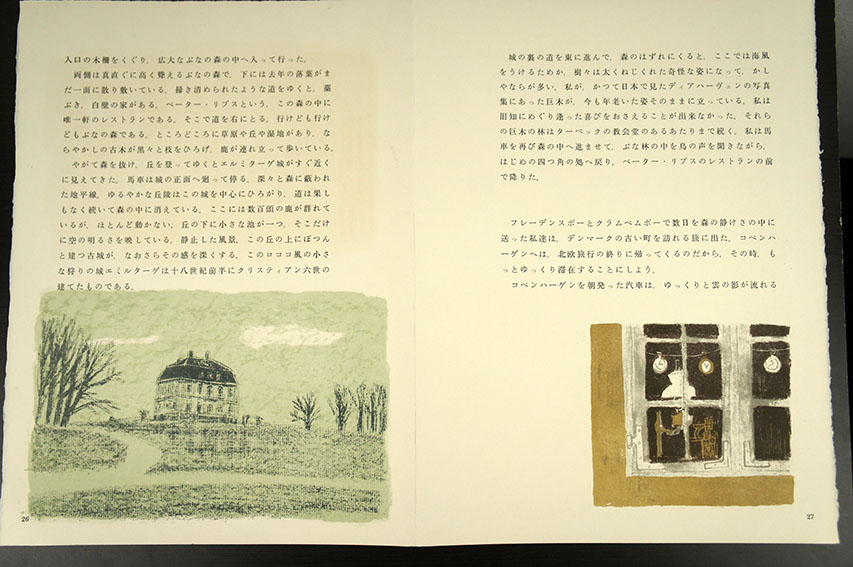 入口の木柵をくぐり，広大なぶなの森の中へ入って行った。
両側は真直ぐに高く聳えるぶなの森で，下には去年の落葉がま
だ一面に散り敷いている。掃き清められたような道をゆくと，藁
ぶき，白壁の家がある。ペーター・リプスという，この森の中に
唯一軒のレストランである。そこで道を右にとる。行けども行け
どもぶなの森である。ところどころに草原や丘や湿地があり，な
らやかしの古木が黒々と枝をひろげ，鹿が連れ立って歩いている。
やがて森を抜け，丘を登ってゆくとエルミターゲ城がすぐ近く
に見えてきた。馬車は城の正面へ廻って停る。深々と森に蔽われ
た地平線。ゆるやかな丘陵はこの城を中心にひろがり，道は果し
もなく続いて森の中に消えている。ここには数百頭の鹿が群れて
いるが，ほとんど動かない。丘の下に小さな池が一つ，そこだけ
に空の明るさを映している。静止した風景。この丘の上にぽつん
と建つ古城が，なおさらその感を深くする。このロココ風の小さ
な狩りの城エミルターゲは十八世紀前半にクリスティアン六世の
建てたものである。
26
城の裏の道を東に進んで，森のはずれにくると，ここでは海風
をうけるためか，樹々は太くねじくれた奇怪な姿になって，かし
やならが多い。私が，かつて日本で見たディアハーヴェンの写真
集にあった巨木が，今も年老いた姿そのままに立っている。私は
旧知にめぐり逢った喜びをおさえることが出来なかった。それら
の巨木の林はターベックの教会堂のあるあたりまで続く。私は馬
車を再び森の中へ進ませて，ぶな林の中を鳥の声を聞きながら，
はじめの四つ角の処へ戻り，ペーター・リプスのレストランの前
で降りた。
フレーデンスボーとクラムペムボーで数日を森の静けさの中に
送った私達は，デンマークの古い町を訪れる旅に出た。コペンハ
ーゲンへは，北欧旅行の終りに帰ってくるのだから，その時，も
っとゆっくり滞在することにしよう。
コペンハーゲンを朝発った汽車は，ゆっくりと雲の影が流れる
27